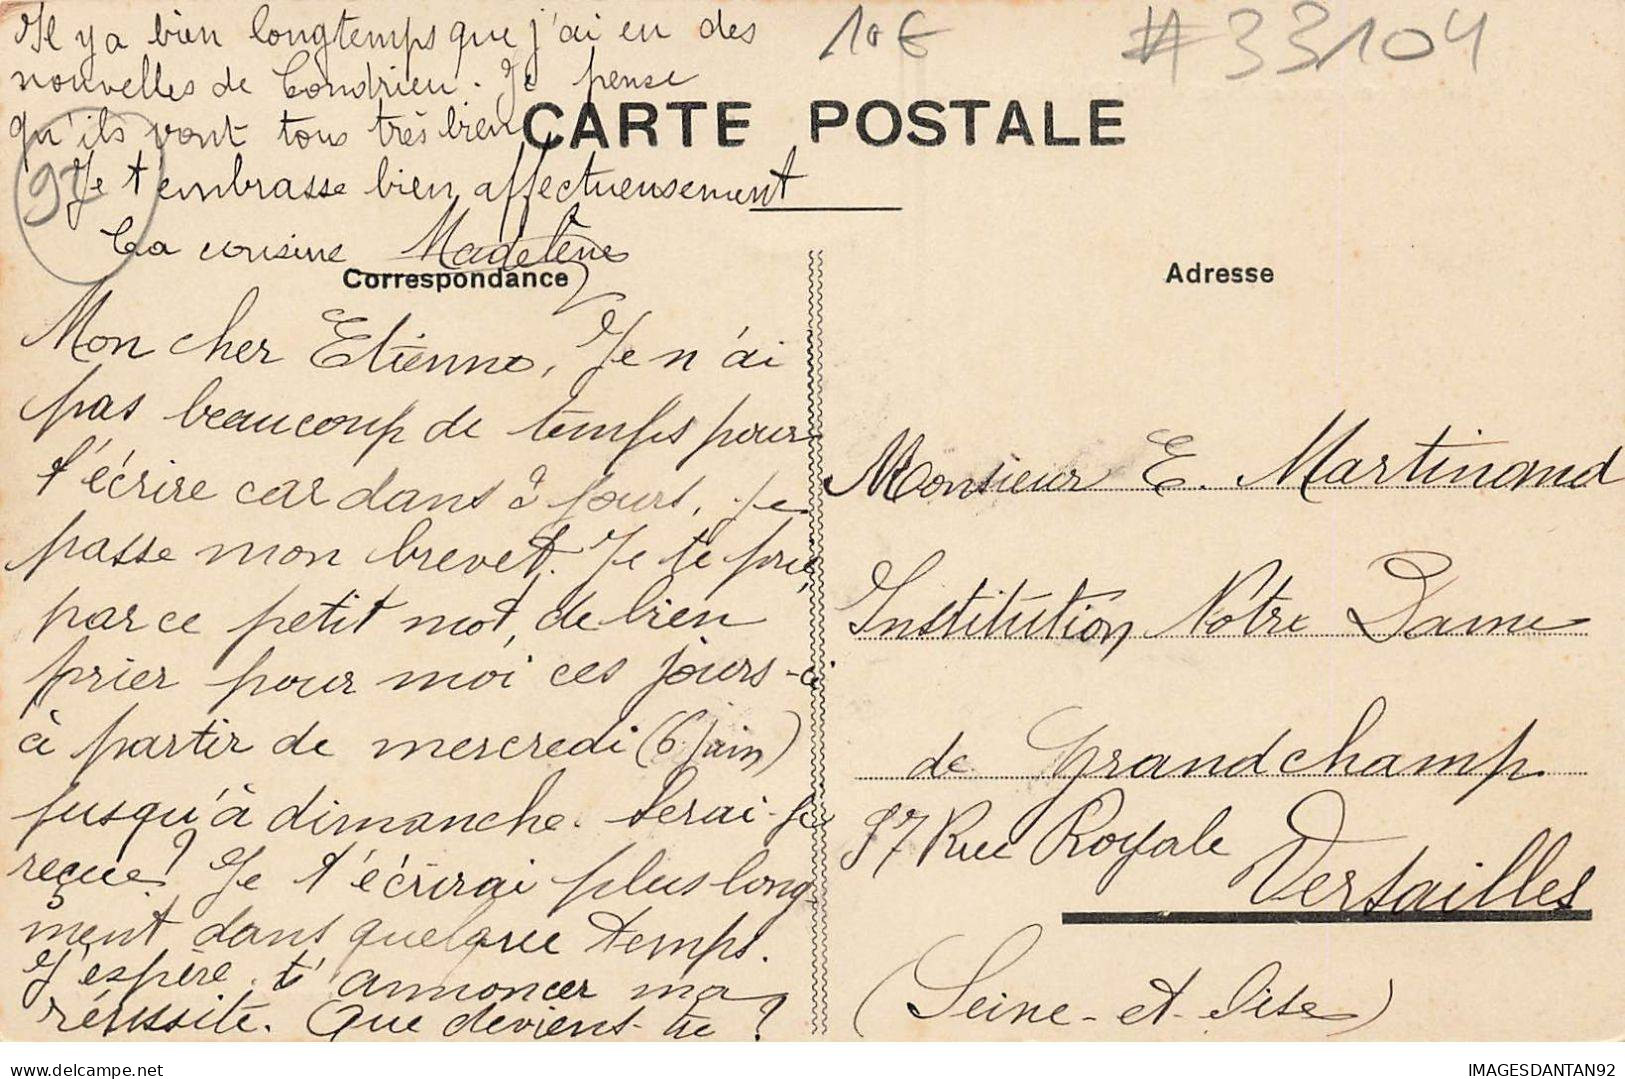 Il y a bien longtemps que j'ai eu des
nouvelles de Condrieu. Je pense
qu'ils vont tous très bien
Je t'embrasse bien affectueusement
Ta cousine Madelene
10 €
#33104
97
CARTE POSTALE
Correspondance
Mon cher Etienne, Je n'ai
pas beaucoup de temps pour
t'écrire car dans 2 jours, je
passe mon brevet. Je te prie
par ce petit mot, de bien
prier pour moi ces jours-ci
à partir de mercredi (6 juin)
jusqu'à dimanche. Serai-je
reçue? Je t'écrirai plus long-
ment dans quelque temps.
J'espère t'annoncer ma
réussite. Que deviens-tu?
Adresse
Monsieur E. Martinand
Institution Notre Dame
de Grandchamp
97 Rue Royale
Versailles
(Seine-et-Oise)
IMAGESDANTAN92